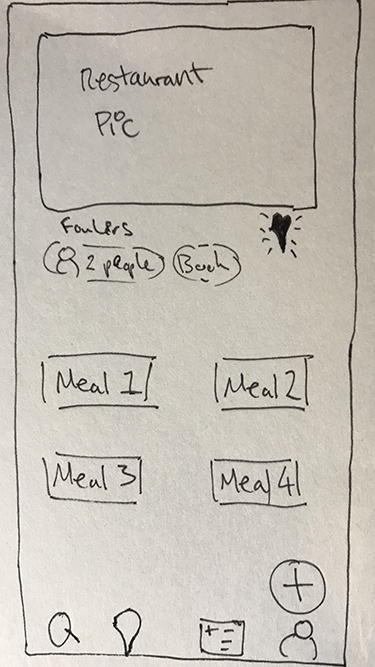 Restaurant
Pic
Foulers
2 people Book
Meal 1 Meal 2
Meal 3 Meal 4